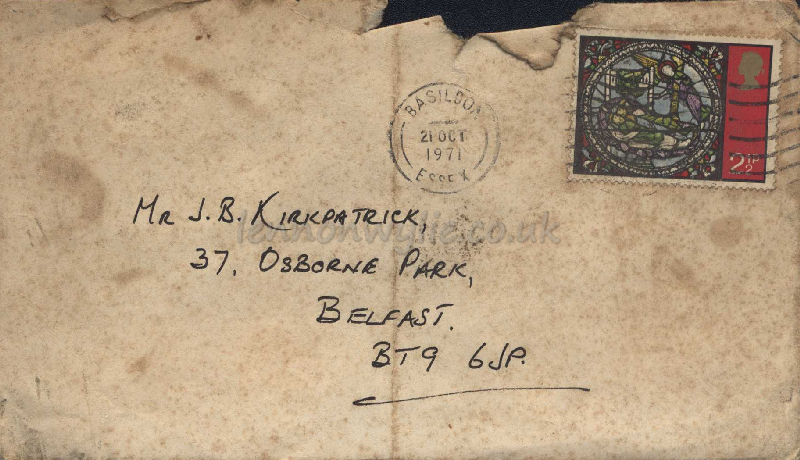 BASILDON
21 OCT
1971
ESSEX
2½P
MR J.B. KIRKPATRICK,
lennonwylie.co.uk
37, OSBORNE PARK,
BELFAST.
BT9 6JP.